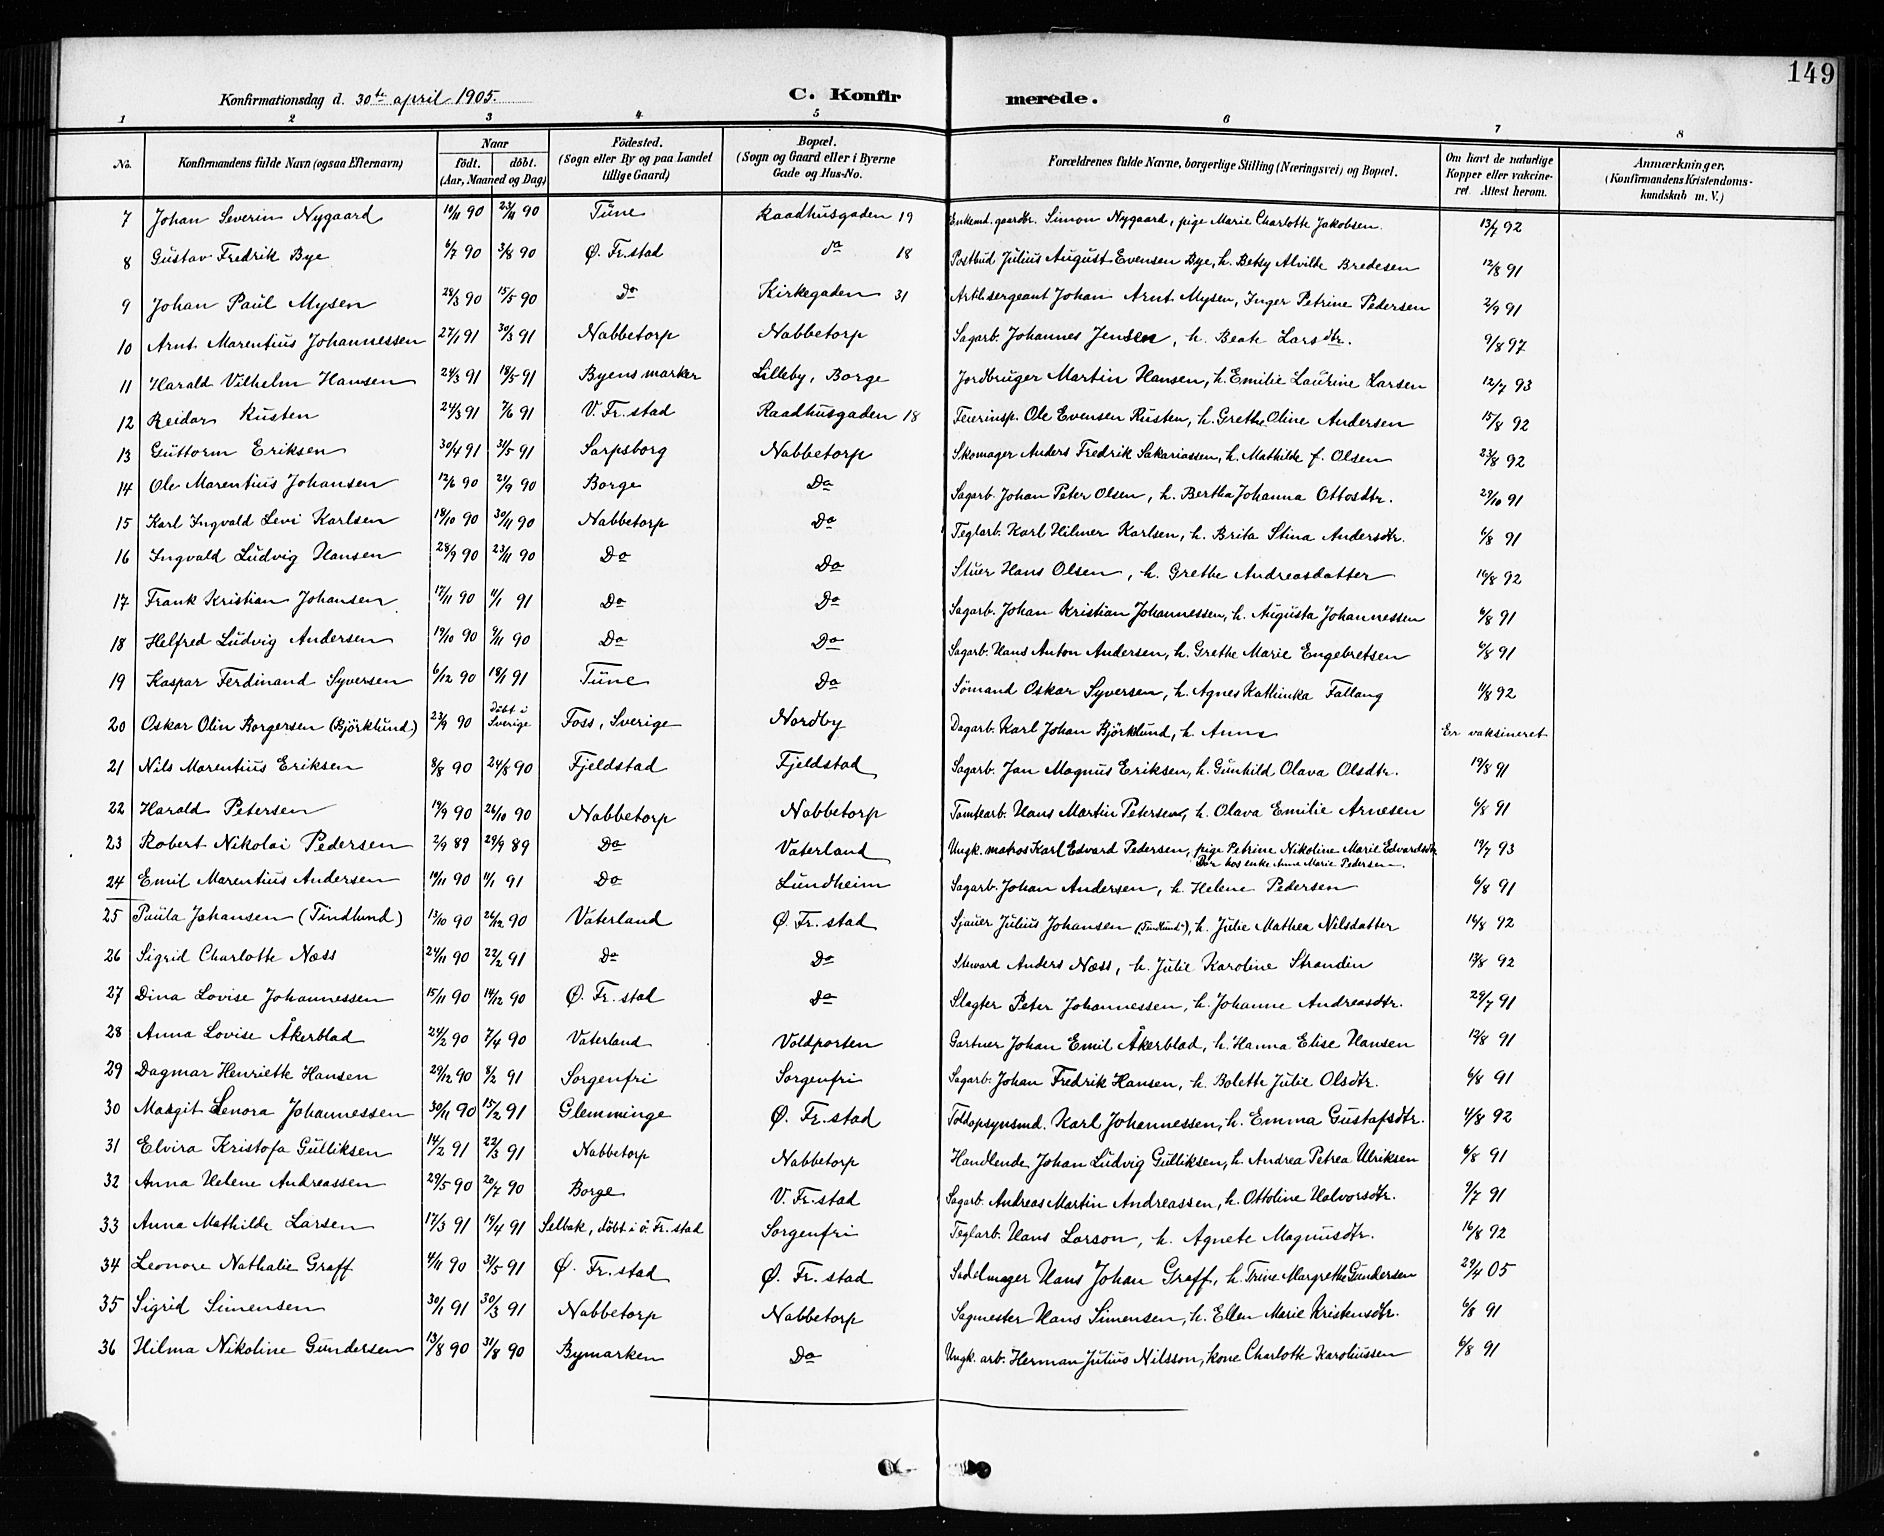 149
Konfirmationsdag d. 30te april 1905.
C. Konfirmerede.
1 2 3 4 5 6 7 8
No. | Konfirmandens fulde Navn (ogsaa Efternavn) | Naar födt. döbt. (Aar, Maaned og Dag) | Födested. (Sogn eller By og paa Landet tillige Gaard) | Bopæl. (Sogn og Gaard eller i Byerne Gade og Hus-No. | Forældrenes fulde Navne, borgerlige Stilling (Næringsvei) og Bopæl. | Om havt de naturlige Kopper eller vakcineret. Attest herom. | Anmærkninger, (Konfirmandens Kristendomskundskab m. V.)
7 Johan Severin Nygaard 10/11 90 23/11 90 Tune Raadhusgaden 19 Enkemd. gaardbr. Simon Nygaard, pige Marie Charlotte Jakobsen. 13/7 92
8 Gustav Fredrik Bye 6/7 90 3/8 90 Ø. Fr.stad do 18 Postbud Julius August Evensen Bye, h. Betsy Alvilde Bredesen 12/8 91
9 Johan Paul Mysen 28/3 90 15/5 90 Do Kirkegaden 31 Artil.sergeant Johan Arnt Mysen, Inger Petrine Pedersen 2/9 91
10 Arnt Marentius Johannessen 27/1 91 30/3 91 Nabbetorp Nabbetorp Sagarb. Johannes Jensen, h. Beate Larsdtr. 9/8 97
11 Harald Vilhelm Hansen 24/3 91 18/5 91 Byens marker Lilleby, Borge Jordbruger Martin Hansen, h. Emilie Laurine Larsen 12/7 93
12 Reidar Rusten 24/3 91 7/6 91 V. Fr.stad Raadhusgaden 18 Feierinsp. Ole Evensen Rusten, h. Grethe Oline Andersen 15/8 92
13 Guttorm Eriksen 30/4 91 31/5 91 Sarpsborg Nabbetorp Skomager Anders Fredrik Sakariassen, h. Mathilde f. Olsen 23/8 92
14 Ole Marentius Johansen 12/6 90 21/9 90 Borge Do Sagarb. Johan Peter Olsen, h. Bertha Johanna Ottosdtr. 29/10 91
15 Karl Ingvald Levi Karlsen 18/10 90 30/11 90 Nabbetorp Do Teglarb. Karl Hilmer Karlsen, h. Brita Stina Andersdtr. 6/8 91
16 Ingvald Ludvig Hansen 28/9 90 23/11 90 Do Do Stuer Hans Olsen, h. Grethe Andreasdatter 16/8 92
17 Frank Kristian Johansen 17/11 90 11/1 91 Do Do Sagarb. Johan Kristian Johannessen, h. Augusta Johannessen 6/8 91
18 Helfred Ludvig Andersen 19/10 90 9/11 90 Do Do Sagarb. Hans Anton Andersen, h. Grethe Marie Engebretsen 6/8 91
19 Kaspar Ferdinand Syversen 6/12 90 18/1 91 Tune Do Sömand Oskar Syversen, h. Agnes Kathinka Fallang 11/8 92
20 Oskar Olin Borgersen (Björklund) 27/9 90 döbt i Sverige Foss, Sverige Nordby Dagarb. Karl Johan Björklund, h. Anna Er vaksineret
21 Nils Marentius Eriksen 8/8 90 24/8 90 Fjeldstad Fjeldstad Sagarb. Jan Magnus Eriksen, h. Gunhild Olava Olsdtr. 19/8 91
22 Harald Petersen 19/9 90 26/10 90 Nabbetorp Nabbetorp Tomtearb. Hans Martin Petersen, h. Olava Emilie Arnesen 6/8 91
23 Robert Nikolai Pedersen 2/9 89 29/9 89 Do Vaterland Ungk. matros Karl Edvard Pedersen, pige Petrine Nikoline Marie Edvardsdtr 19/7 93
Bor hos enke Anne Marie Pedersen
24 Emil Marentius Andersen 19/11 90 11/1 91 Do Lundheim Sagarb. Johan Andersen, h. Helene Pedersen 6/8 91
25 Paula Johansen (Tindlund) 13/10 90 26/12 90 Vaterland Ø. Fr. stad Sjauer Julius Johansen (Tindlund), h. Julie Mathea Nilsdatter 16/8 92
26 Sigrid Charlotte Næss 24/11 90 22/2 91 Do Do Steward Anders Næss, h. Julie Karoline Strandin 13/8 92
27 Dina Lovise Johannessen 15/11 90 14/12 90 Ø. Fr. stad Do Slagter Peter Johannessen, h. Johanne Andreasdtr. 29/7 91
28 Anna Lovise Åkerblad 24/2 90 7/4 90 Vaterland Voldporten Gartner Johan Emil Åkerblad, h. Hanna Elise Hansen 12/8 91
29 Dagmar Henriette Hansen 29/12 90 8/2 91 Sorgenfri Sorgenfri Sagarb. Johan Fredrik Hansen, h. Bolette Julie Olsdtr. 6/8 91
30 Margit Lenora Johannessen 30/11 90 15/2 91 Glemminge Ø. Fr. stad Toldopsynsmd. Karl Johannessen, h. Emma Gustafsdtr. 4/8 92
31 Elvira Kristofa Gulliksen 14/2 91 22/3 91 Nabbetorp Nabbetorp Handlende Johan Ludvig Gulliksen, h. Andrea Petrea Ulriksen 6/8 91
32 Anna Helene Andreassen 29/5 90 20/7 90 Borge V. Fr. stad Sagarb. Andreas Martin Andreassen, h. Ottoline Halvorsdtr. 9/7 91
33 Anna Mathilde Larsen 17/3 91 19/4 91 Selbak, döbt i ö. Fr. stad Sorgenfri Teglarb. Hans Larson, h. Agnete Magnusdtr. 16/8 92
34 Leonore Nathalie Graff 4/11 90 31/5 91 Ø. Fr. stad Ø. Fr. stad Sadelmager Hans Johan Graff, h. Trine Margrethe Gundersen 29/4 05
35 Sigrid Simensen 30/1 91 30/3 91 Nabbetorp Nabbetorp Sagmester Hans Simensen, h. Ellen Marie Kristensdtr. 6/8 91
36 Hilma Nikoline Gundersen 13/8 90 31/8 90 Bymarken Do Ungk. arb. Herman Julius Nilsson, kone Charlotte Karoliussen 6/8 91